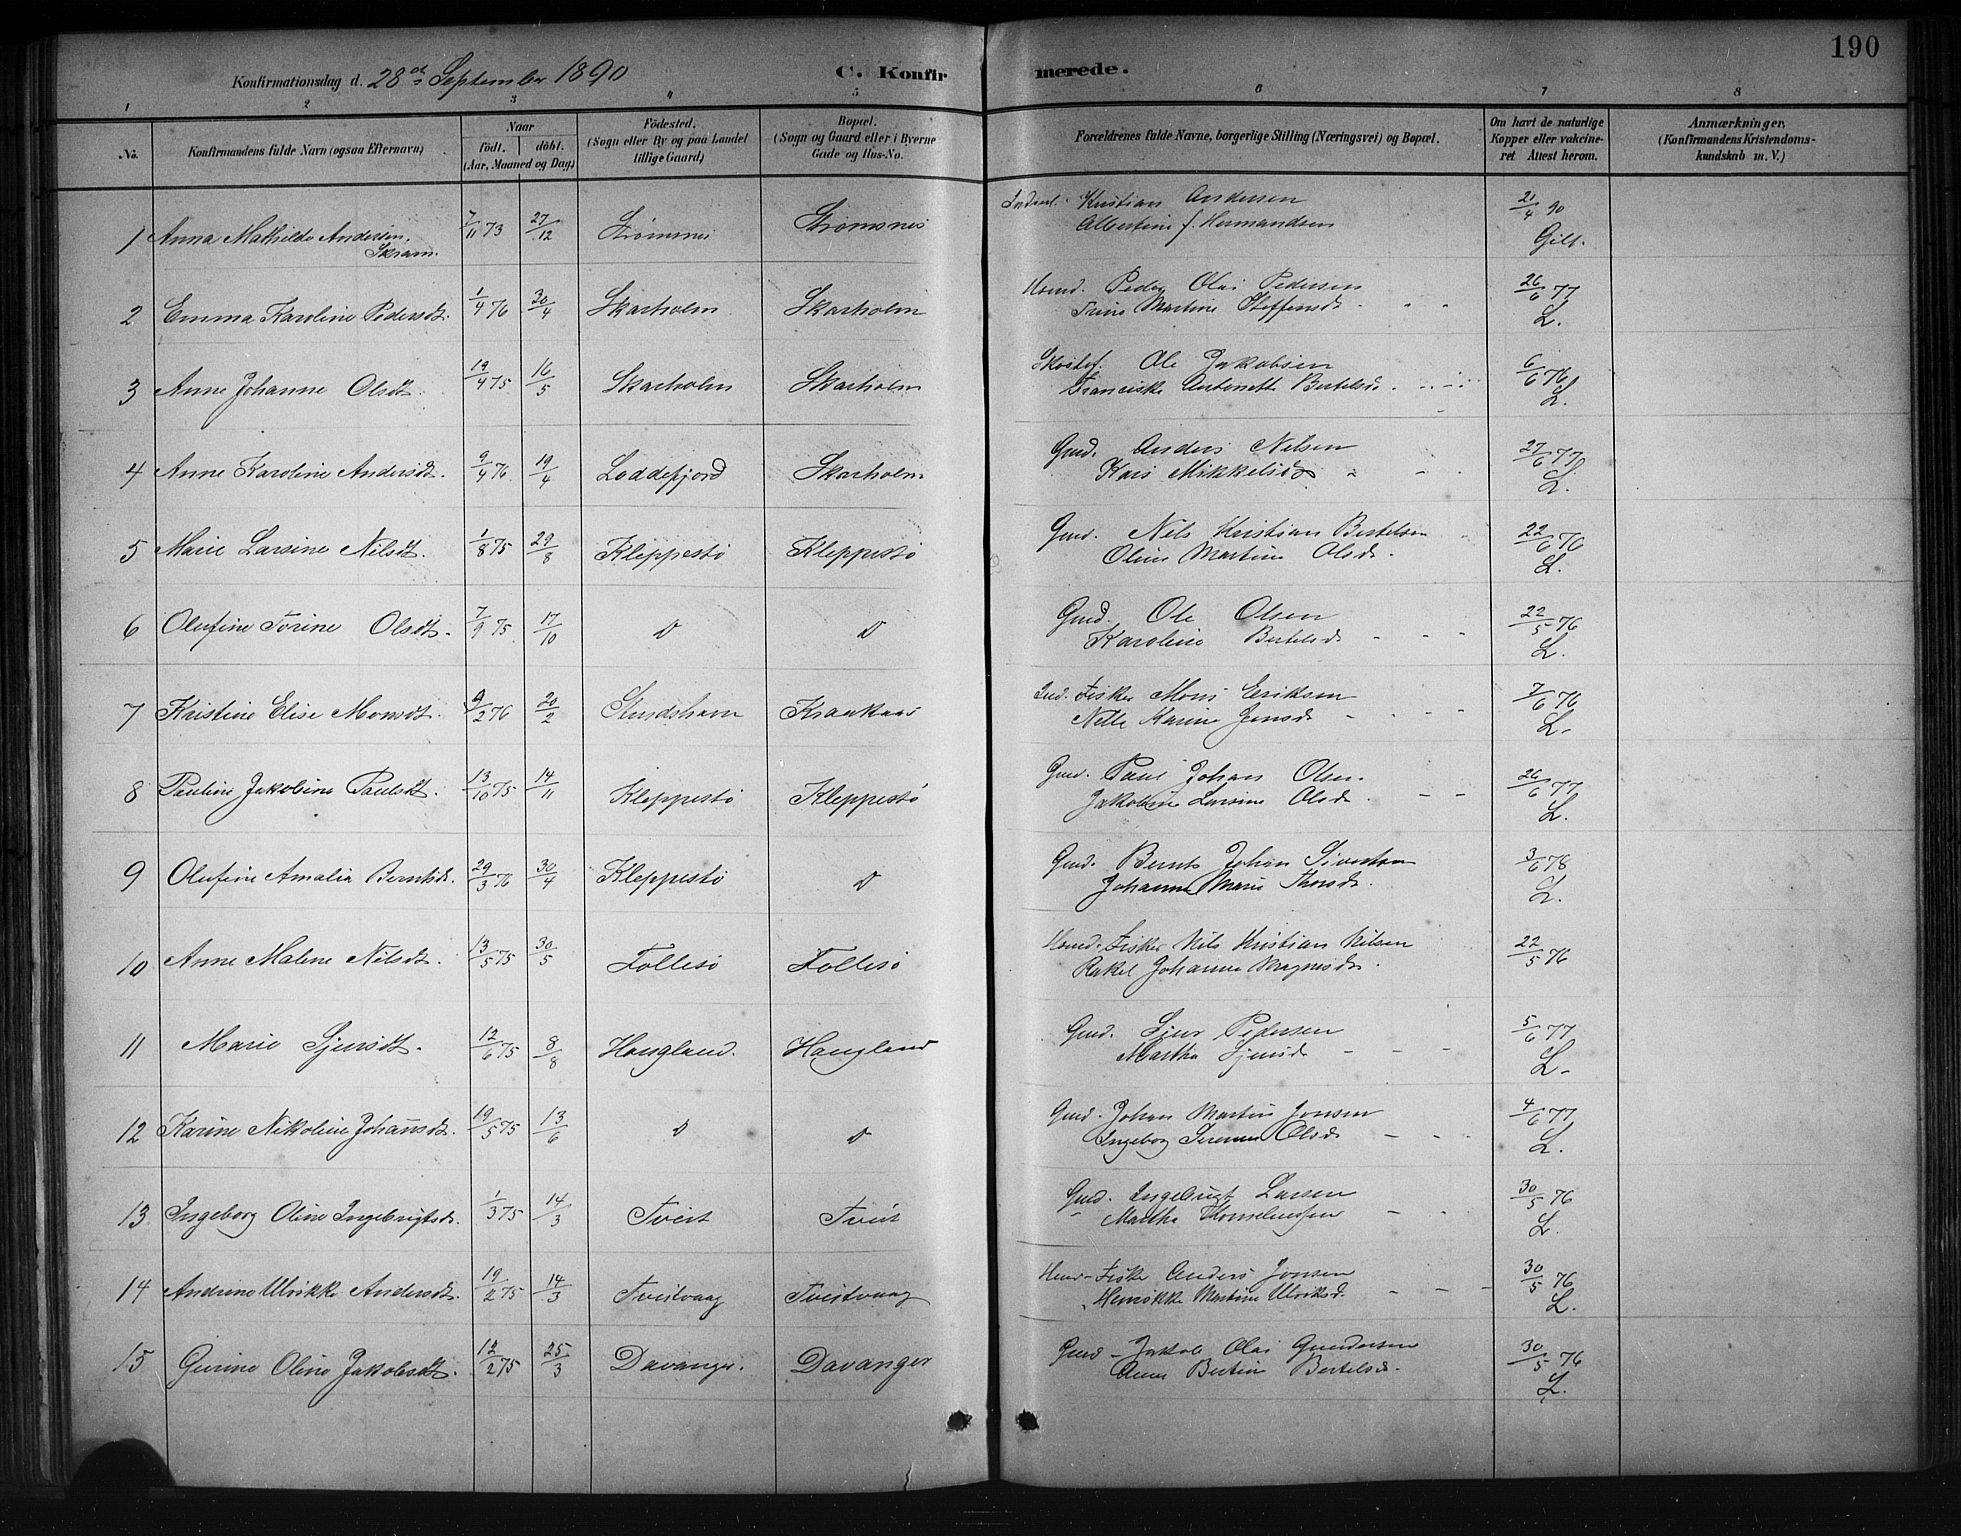 190
Konfirmationsdag d. 28de September 1890 C. Konfirmerede.
1 2 3 4 5 6 7 8
No. Konfirmandens fulde Navn (ogsaa Efternavn) Naar födt. döbt. (Aar, Maaned og Dag) Födested. (Sogn eller By og paa Landet tillige Gaard) Bopæl. (Sogn og Gaard eller i Byerne Gade og Hus-No. Forældrenes fulde Navne, borgerlige Stilling (Næringsvei) og Bopæl. Om havt de naturlige Kopper eller vakcineret Attest herom. Anmærkninger, (Konfirmandens Kristendomskundskab m. V.)
1 Anna Mathilde Andersen, Skram. 7/11 73 27/12 Strømsnes Strømsnes Kristian Andersen 21/4 90
Albertine f. Hermandsen Gilt.
2 Emma Karoline Pedersdt. 1/4 76 30/4 Skarholm Skarholm Hmd. Peder Olai Pedersen 26/6 77
Trine Martine Steffensdt " " L.
3 Anne Johanne Olsdt. 19/4 75 16/5 Skarholm Skarholm Ole Jakobsen 6/6 76
Franciske Antonette Bertelsd. L.
4 Anne Karoline Andersdt. 9/4 76 19/4 Loddefjord Skarholm Gmd. Anders Nilsen 27/6 77
Kari Mikkelsdt " " L.
5 Marie Larsine Nilsdt. 1/8 75 29/8 Kleppestö Kleppestö Gmd. Nils Kristian Bertelsen 22/6 76
Oline Martine Olsd. L.
6 Olufine Torine Olsdt. 7/9 75 17/10 D D Gmd. Ole Olsen 22/5 76
Karoline Bertelsd " " " L.
7 Kristine Elise Monsdt. 9/2 76 20/2 Skudshavn Kraakaas Ind. Fisker Mons Eriksen 7/6 76
Nille Karine Jensd " " " L.
8 Pauline Jakobine Paulsdt. 13/10 75 14/11 Kleppestö Kleppestö Gmd. Paul Johan Olsen 26/6 77
Jakobine Larsine Olsd. " " L.
9 Olufine Amalia Berntsd. 29/3 76 30/4 Kleppestö D Gmd. Bernt Johan Sivertsen 3/6 78
Johanne Marie Thorsd. L.
10 Anne Malene Nilsdt. 13/5 75 30/5 Follesö Follesö Hmd. Fisker Nils Kristian Nilsen 22/5 76
Rakel Johanne Magnusd.
11 Marie Sjursdt. 12/6 75 8/8 Hougland. Haugland Gmd. Sjur Pedersen 5/6 77
Martha Sjursd " " " L.
12 Karine Nikoline Johansdt. 19/5 75 13/6 D D Gmd. Johan Martin Jonsen 4/6 77
Ingeborg Serene Olsd " " L.
13 Ingeborg Oline Ingebrigtsd. 1/3 75 14/3 Tveit Tveit Gmd. Ingebrigt Larsen 30/5 76
Martha " " L.
14 Andrine Ulrikke Andersdt. 19/2 75 14/3 Tveitvaag Tveitvaag Fisker Anders Jonsen 30/5 76
Henrikke Martine Ulriksd. " " " L.
15 Gurine Oline Jakobsdt. 12/2 75 25/3 Davanger. Davanger Gmd. Jakob Olai Gundersen 30/5 76
Anne Bertine Bertelsd. L.